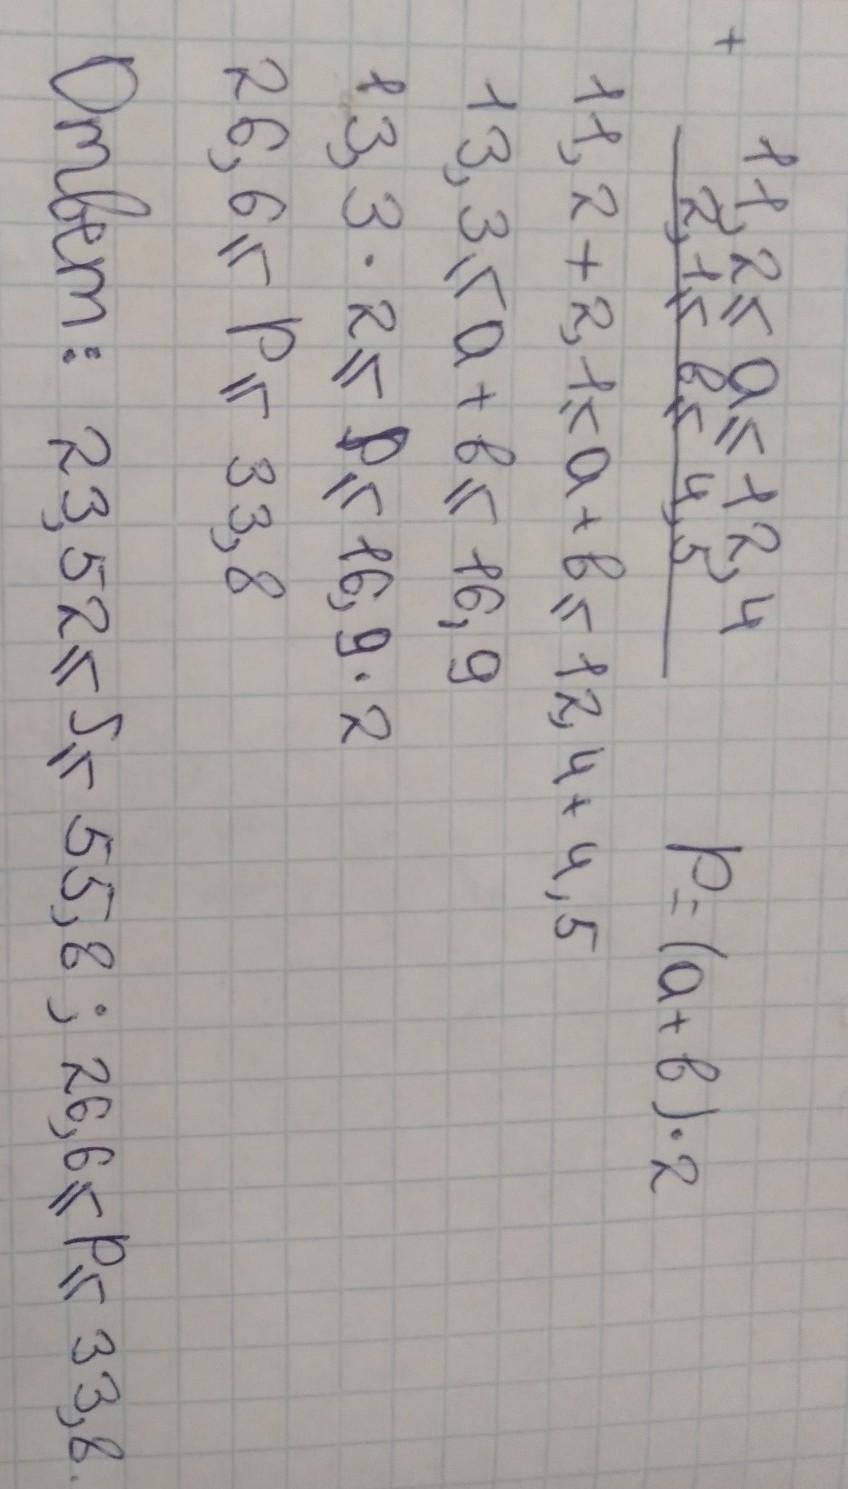 + 11,2 ⩽ a ⩽ 12,4
2,1 ⩽ b ⩽ 4,5 P = (a + b) · 2
11,2 + 2,1 ⩽ a + b ⩽ 12,4 + 4,5
13,3 ⩽ a + b ⩽ 16,9
13,3 · 2 ⩽ P ⩽ 16,9 · 2
26,6 ⩽ P ⩽ 33,8
Ответ: 23,52 ⩽ S ⩽ 55,8; 26,6 ⩽ P ⩽ 33,8.